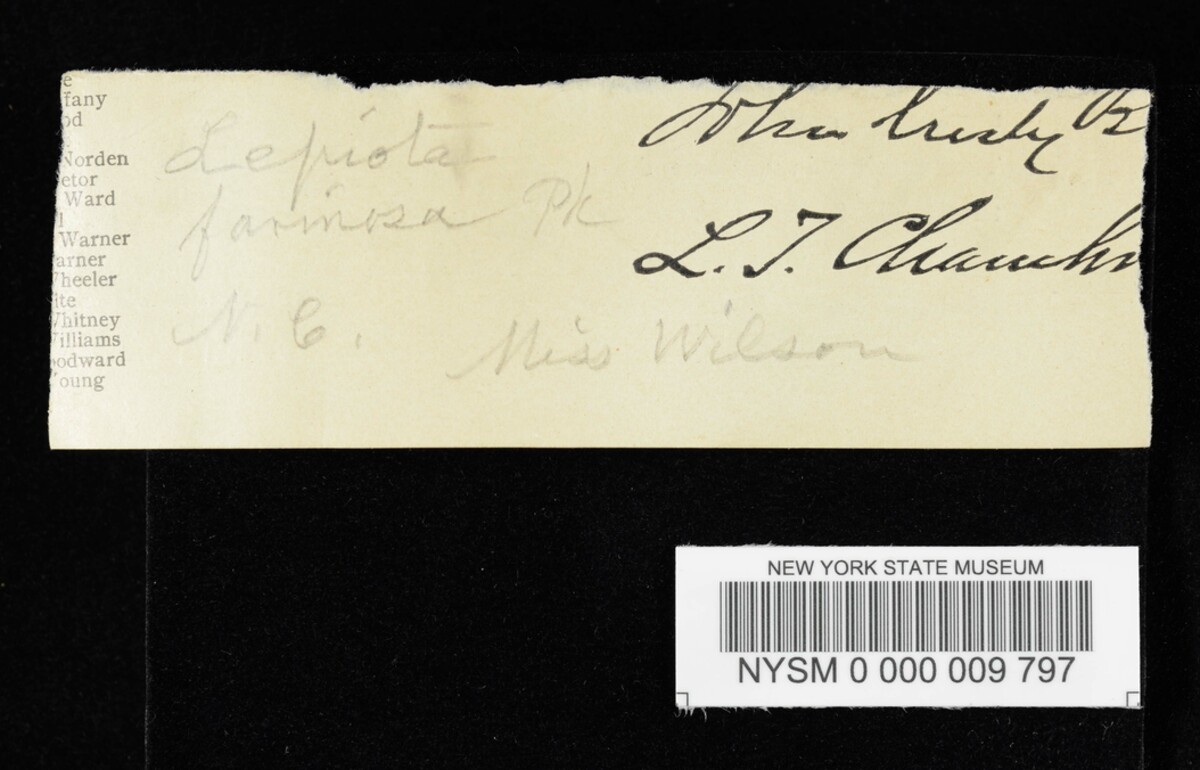 e
fany
od
Norden
etor
Ward
l
Warner
arner
Wheeler
ite
Whitney
Williams
odward
oung
Lepiota
farinosa Pk
N. C.
Miss Wilson
John Crosby B
L. T. Chamb
NEW YORK STATE MUSEUM
NYSM 0 000 009 797